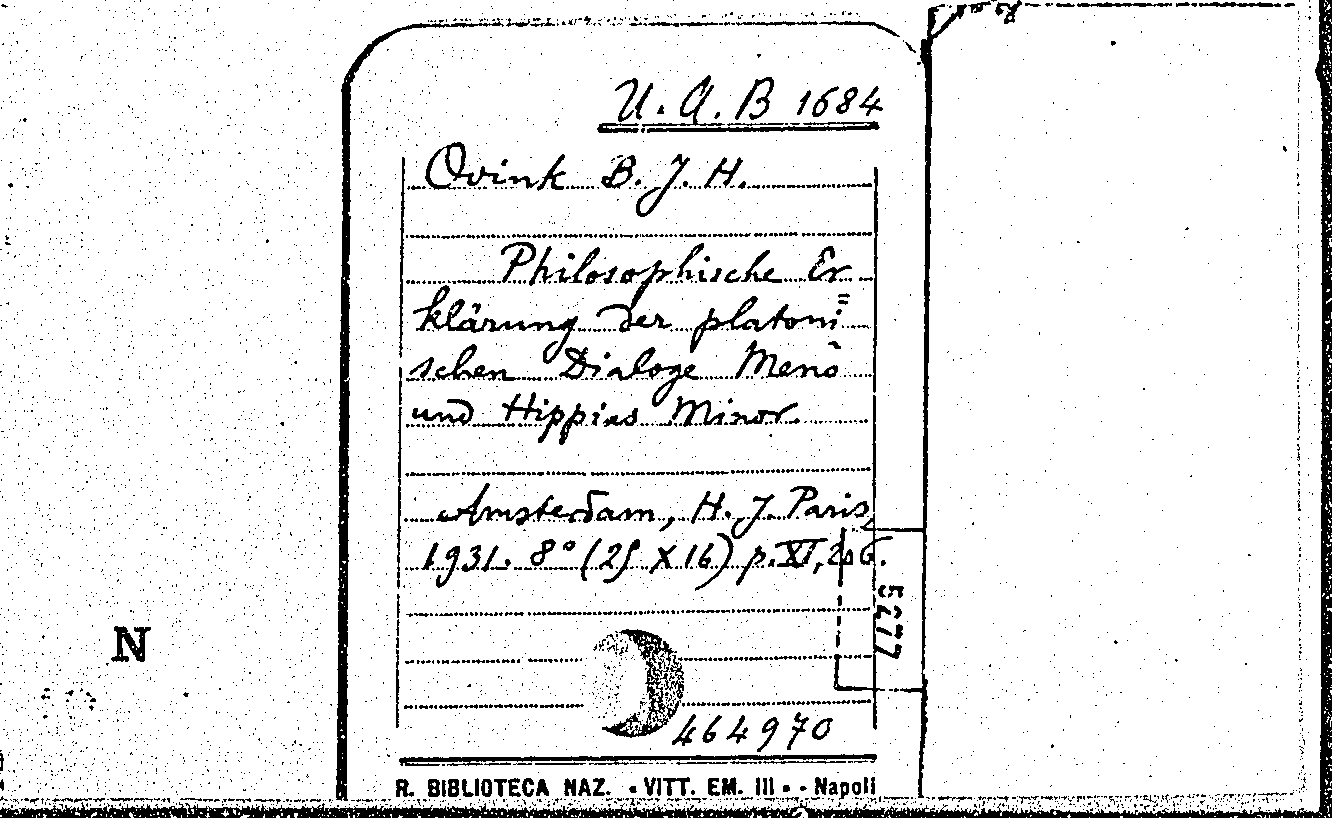 U. A. B 1684
Ovink B. J. H.
Philosophische Er
klärung der platoni=
schen Dialoge Meno
und Hippias Minor.
Amsterdam, H. J. Paris,
1931. 8° (25 X 16) p. XI, 206.
5277
N
464970
R. BIBLIOTECA NAZ. - VITT. EM. III - - Napoli